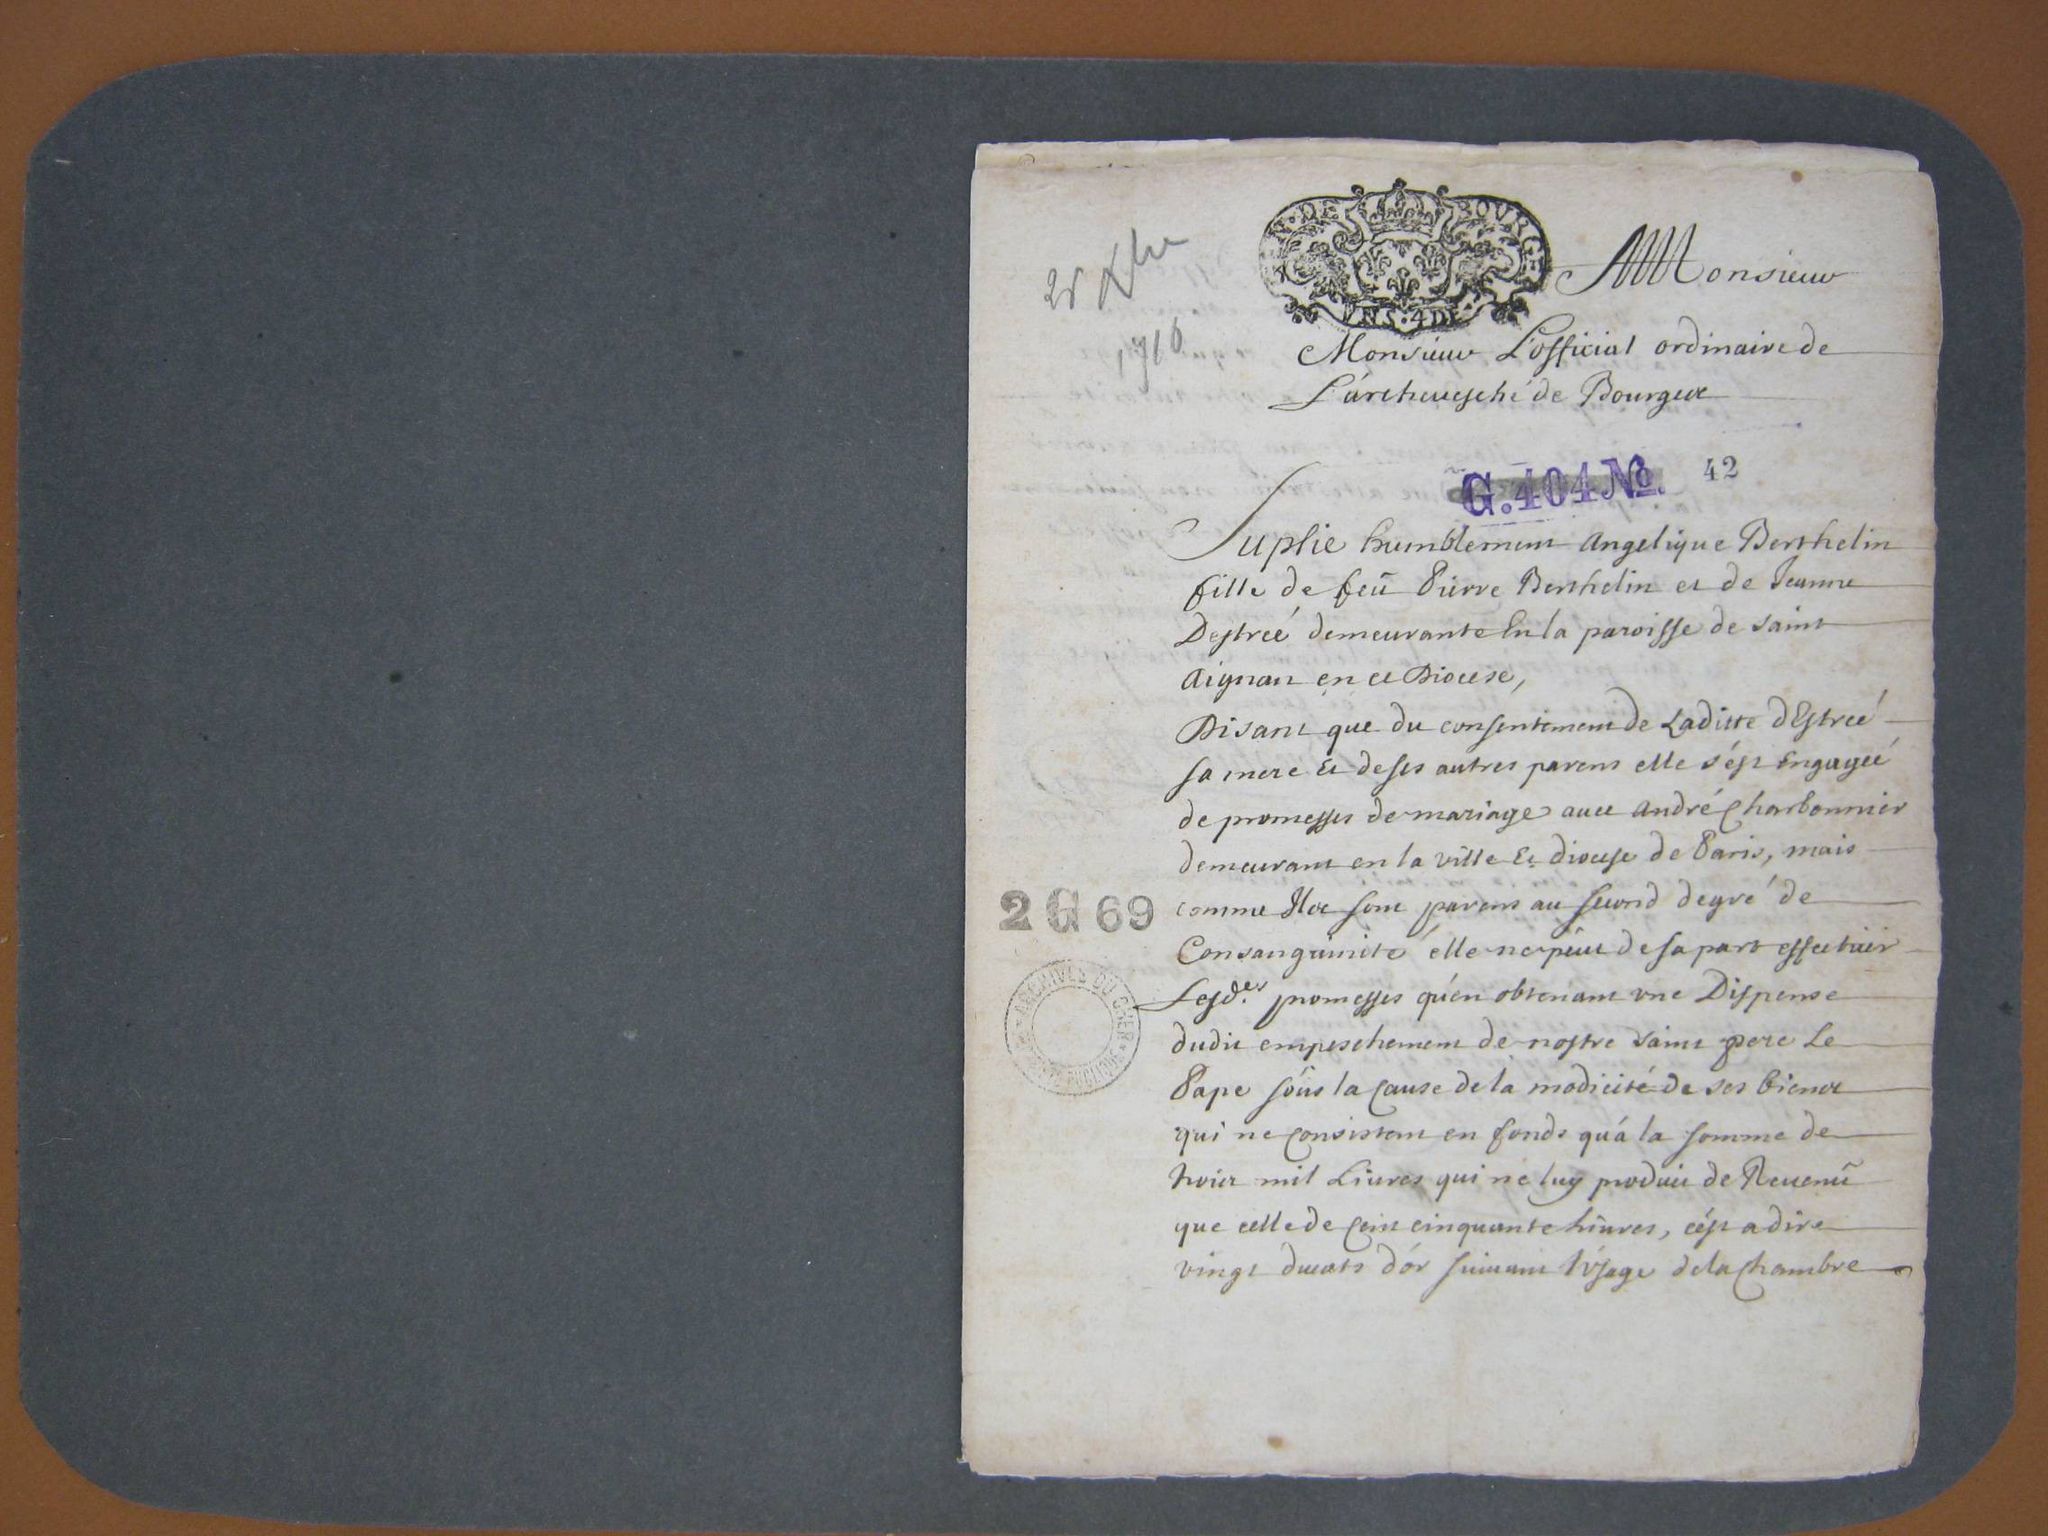 28 Xbre
1716
GEN. DE BOURGES
UNS. 4 DE
A Monsieur
Monsieur L'official ordinaire de
L'archevesché de Bourges
G. 404 No. 42
Suplie humblement Angelique Berthelin
fille de feü Pierre Berthelin et de Jeanne
Destreé demeurante En la paroisse de saint
Aignan en ce Diocese,
Disant que du consentement de Laditte dEstreé
sa mere Et de ses autres parens elle s'ést Engageé
de promesses de mariage auec André Charbonnier
demeurant en la ville Et diocese de Paris, mais
comme Ils sont parens au second degré de
Consanguinité elle ne peut de sa part effectüer
Lesd.es promesses qu'en obtenant vne Dispense
dudit empeschement de nostre saint pere Le
Pape soûs la Cause de la modicité de ses biens
qui ne Consistent en fonds qu'á la somme de
trois mil Liures qui ne luy produit de Reuenü
que celle de Cent cinquante liures, cést a dire
vingt ducats d'ór suiuant l'vsage de la Chambre
2 G 69
ARCHIVES DU CHER